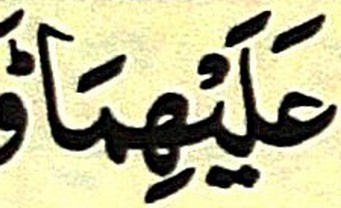 عَلَيْهِمَا وَ